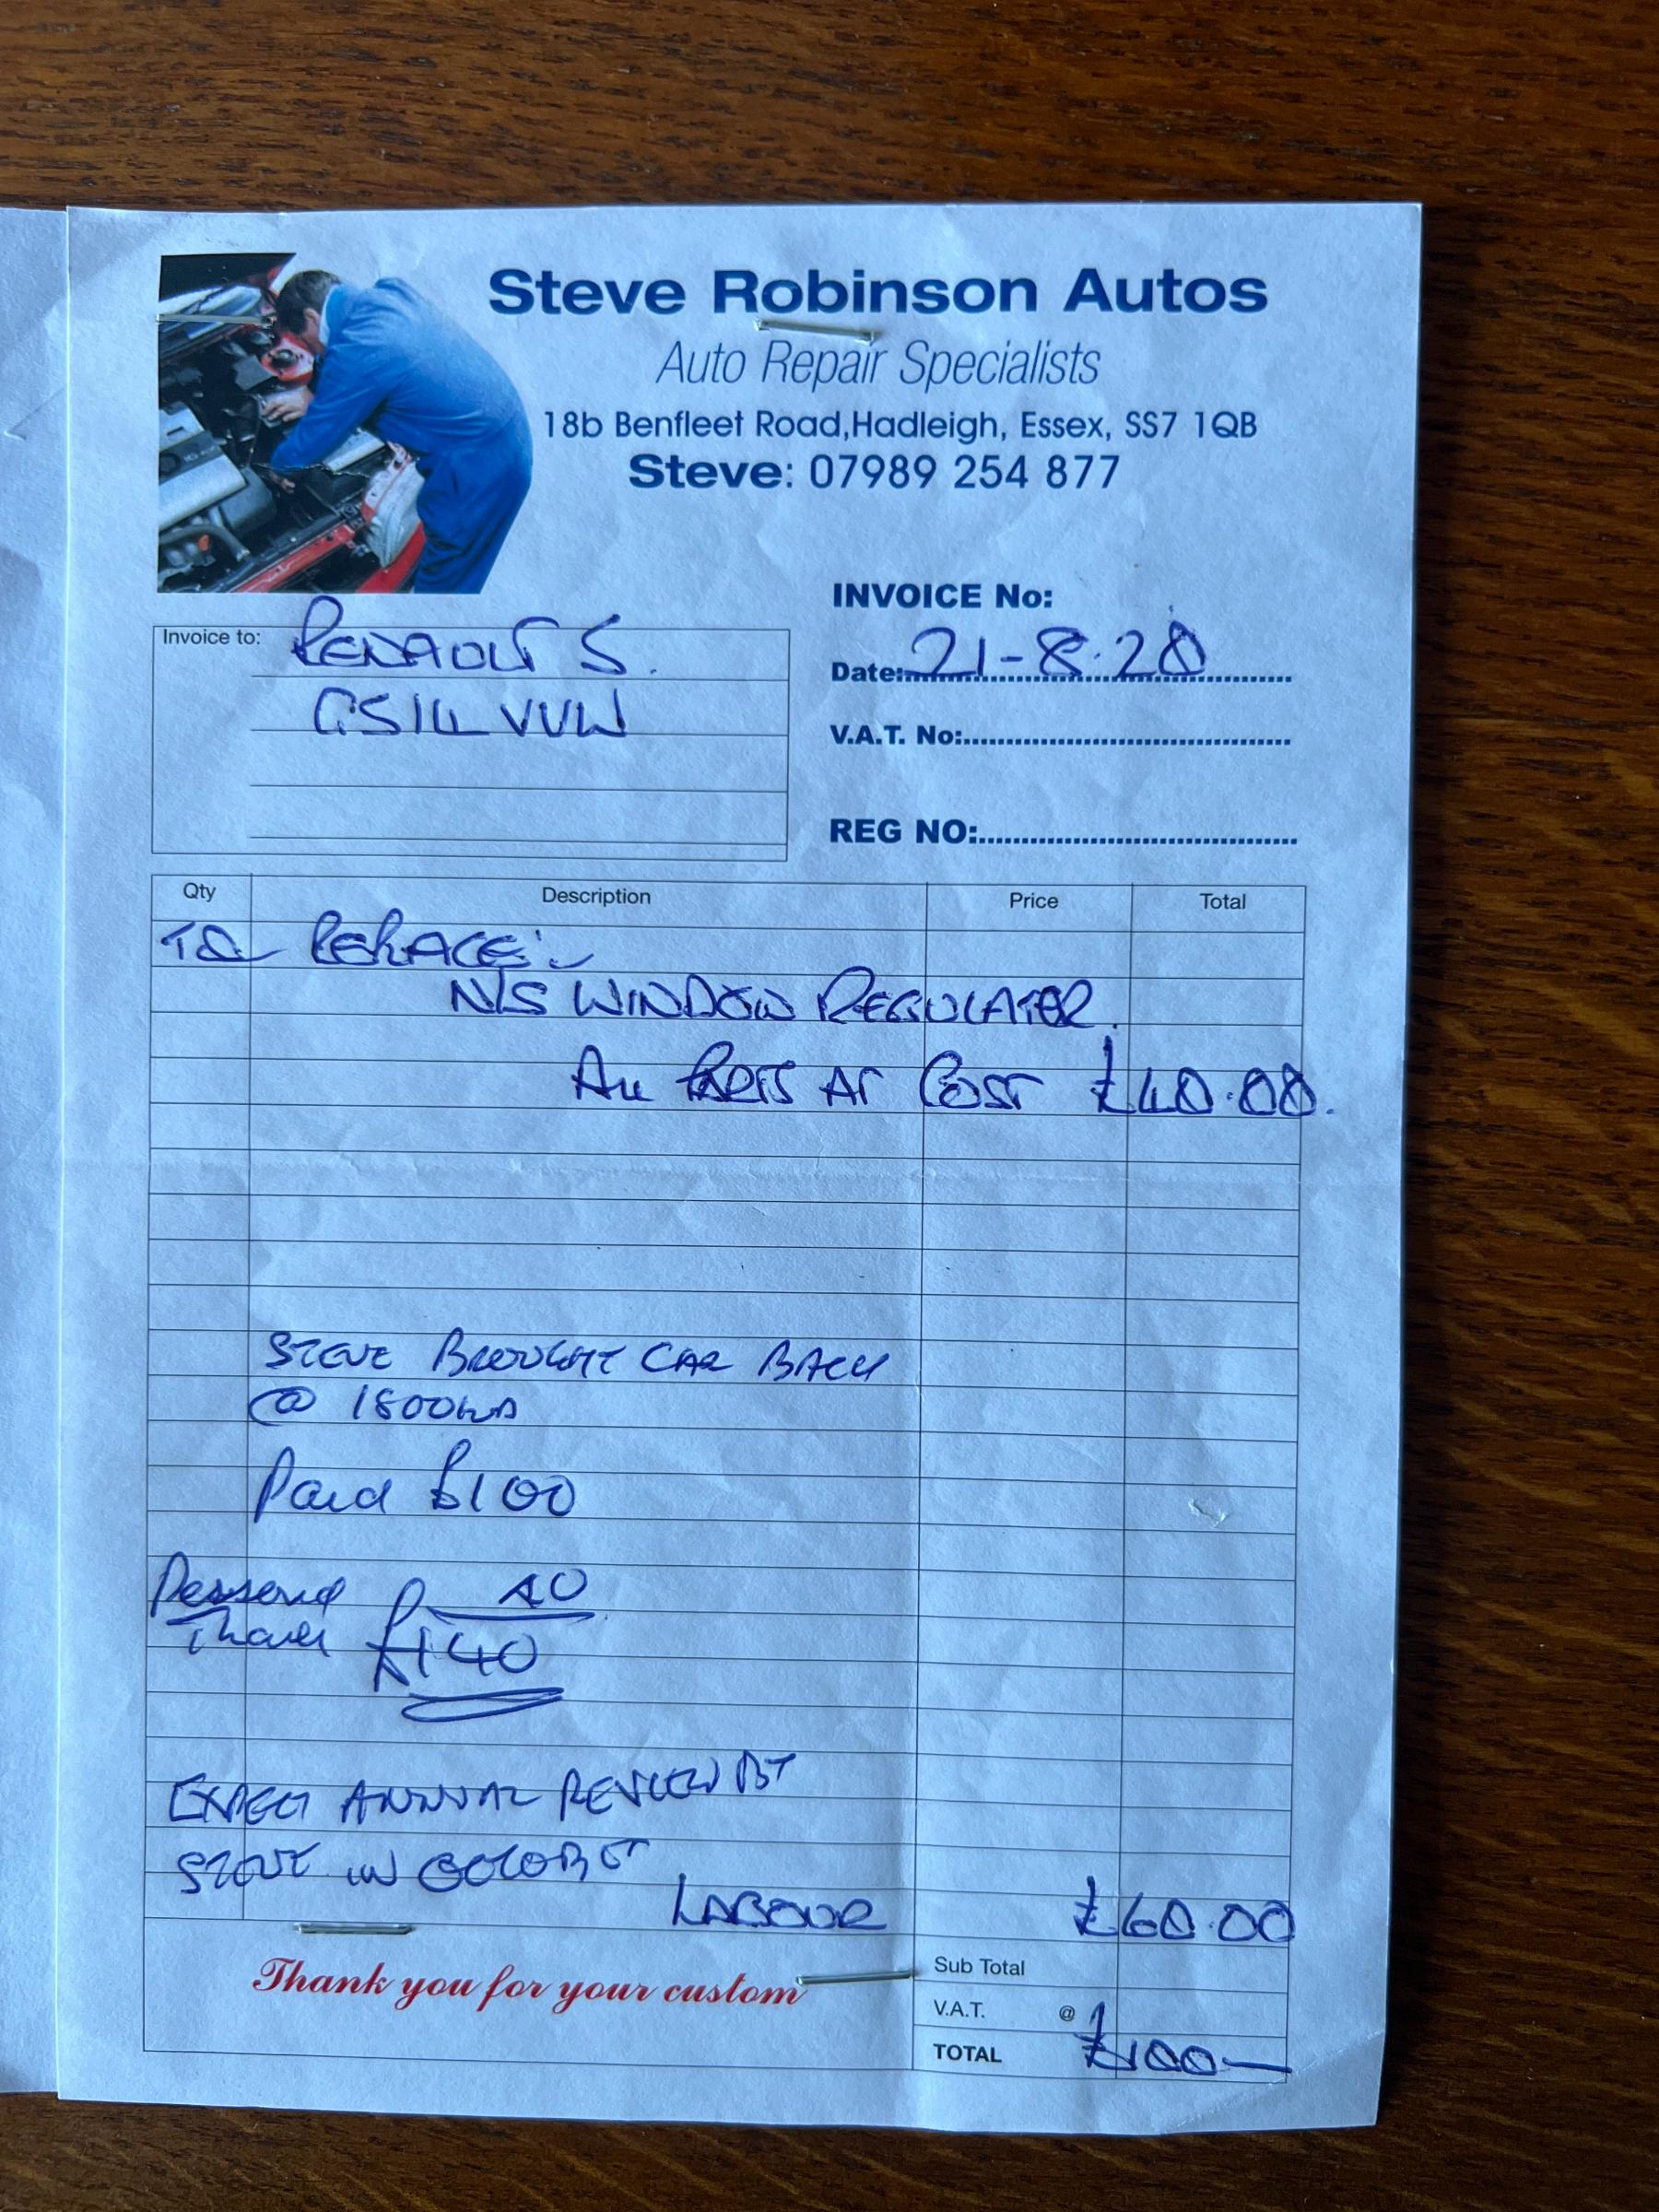 Steve Robinson Autos
Auto Repair Specialists
18b Benfleet Road,Hadleigh, Essex, SS7 1QB
Steve: 07989 254 877
INVOICE No:
Invoice to: RENAULT 5.
Date: 21-8.20
VUW
V.A.T. No:
REG NO:
Qty Description Price Total
TO REPLACE:-
N/S WINDOW REGULATOR.
ALL PARTS AT COST £40.00.
STEVE BROUGHT CAR BACK
@ 1800
Paid £100
40
£140
EXPECT ANNUAL REVIEW BY
STEVE IN OCTOBER
LABOUR £60.00
Thank you for your custom
Sub Total
V.A.T. @
TOTAL £100—